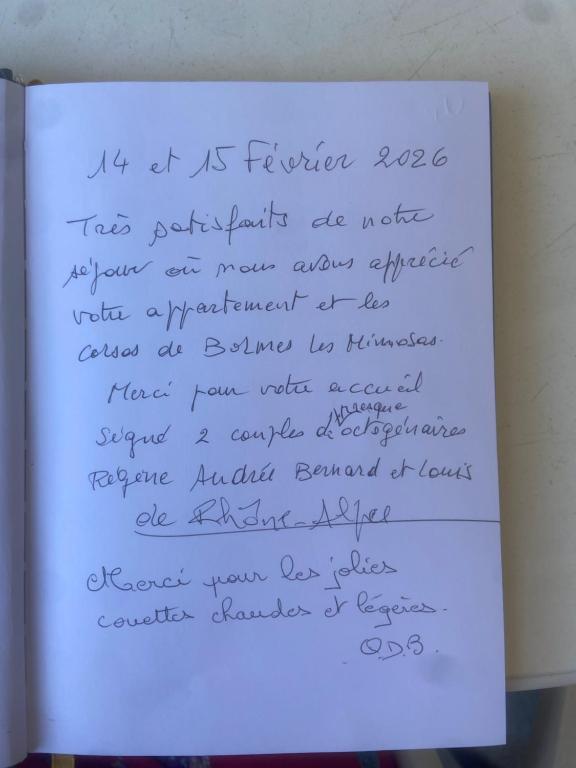 14 et 15 Février 2026
Très satisfaits de notre
séjour où nous avons apprécié
votre appartement et les
corsos de Bormes les Mimosas.
Merci pour votre accueil
Signé 2 couples d'presque octogénaires
Régine Andrée Bernard et Louis
de Rhône-Alpes
Merci pour les jolies
couettes chaudes et légères.
O.D.B.